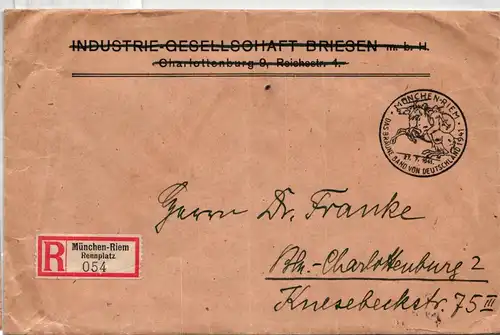 INDUSTRIE-GESELLSCHAFT BRIESEN m. b. H.
Charlottenburg 9, Reichsstr. 4.
MÜNCHEN-RIEM
DAS BRAUNE BAND VON DEUTSCHLAND 1941
27. 7. 1941
R
München-Riem
Rennplatz
054
Herrn Dr. Franke
Bln-Charlottenburg 2
Knesebeckstr. 75 III